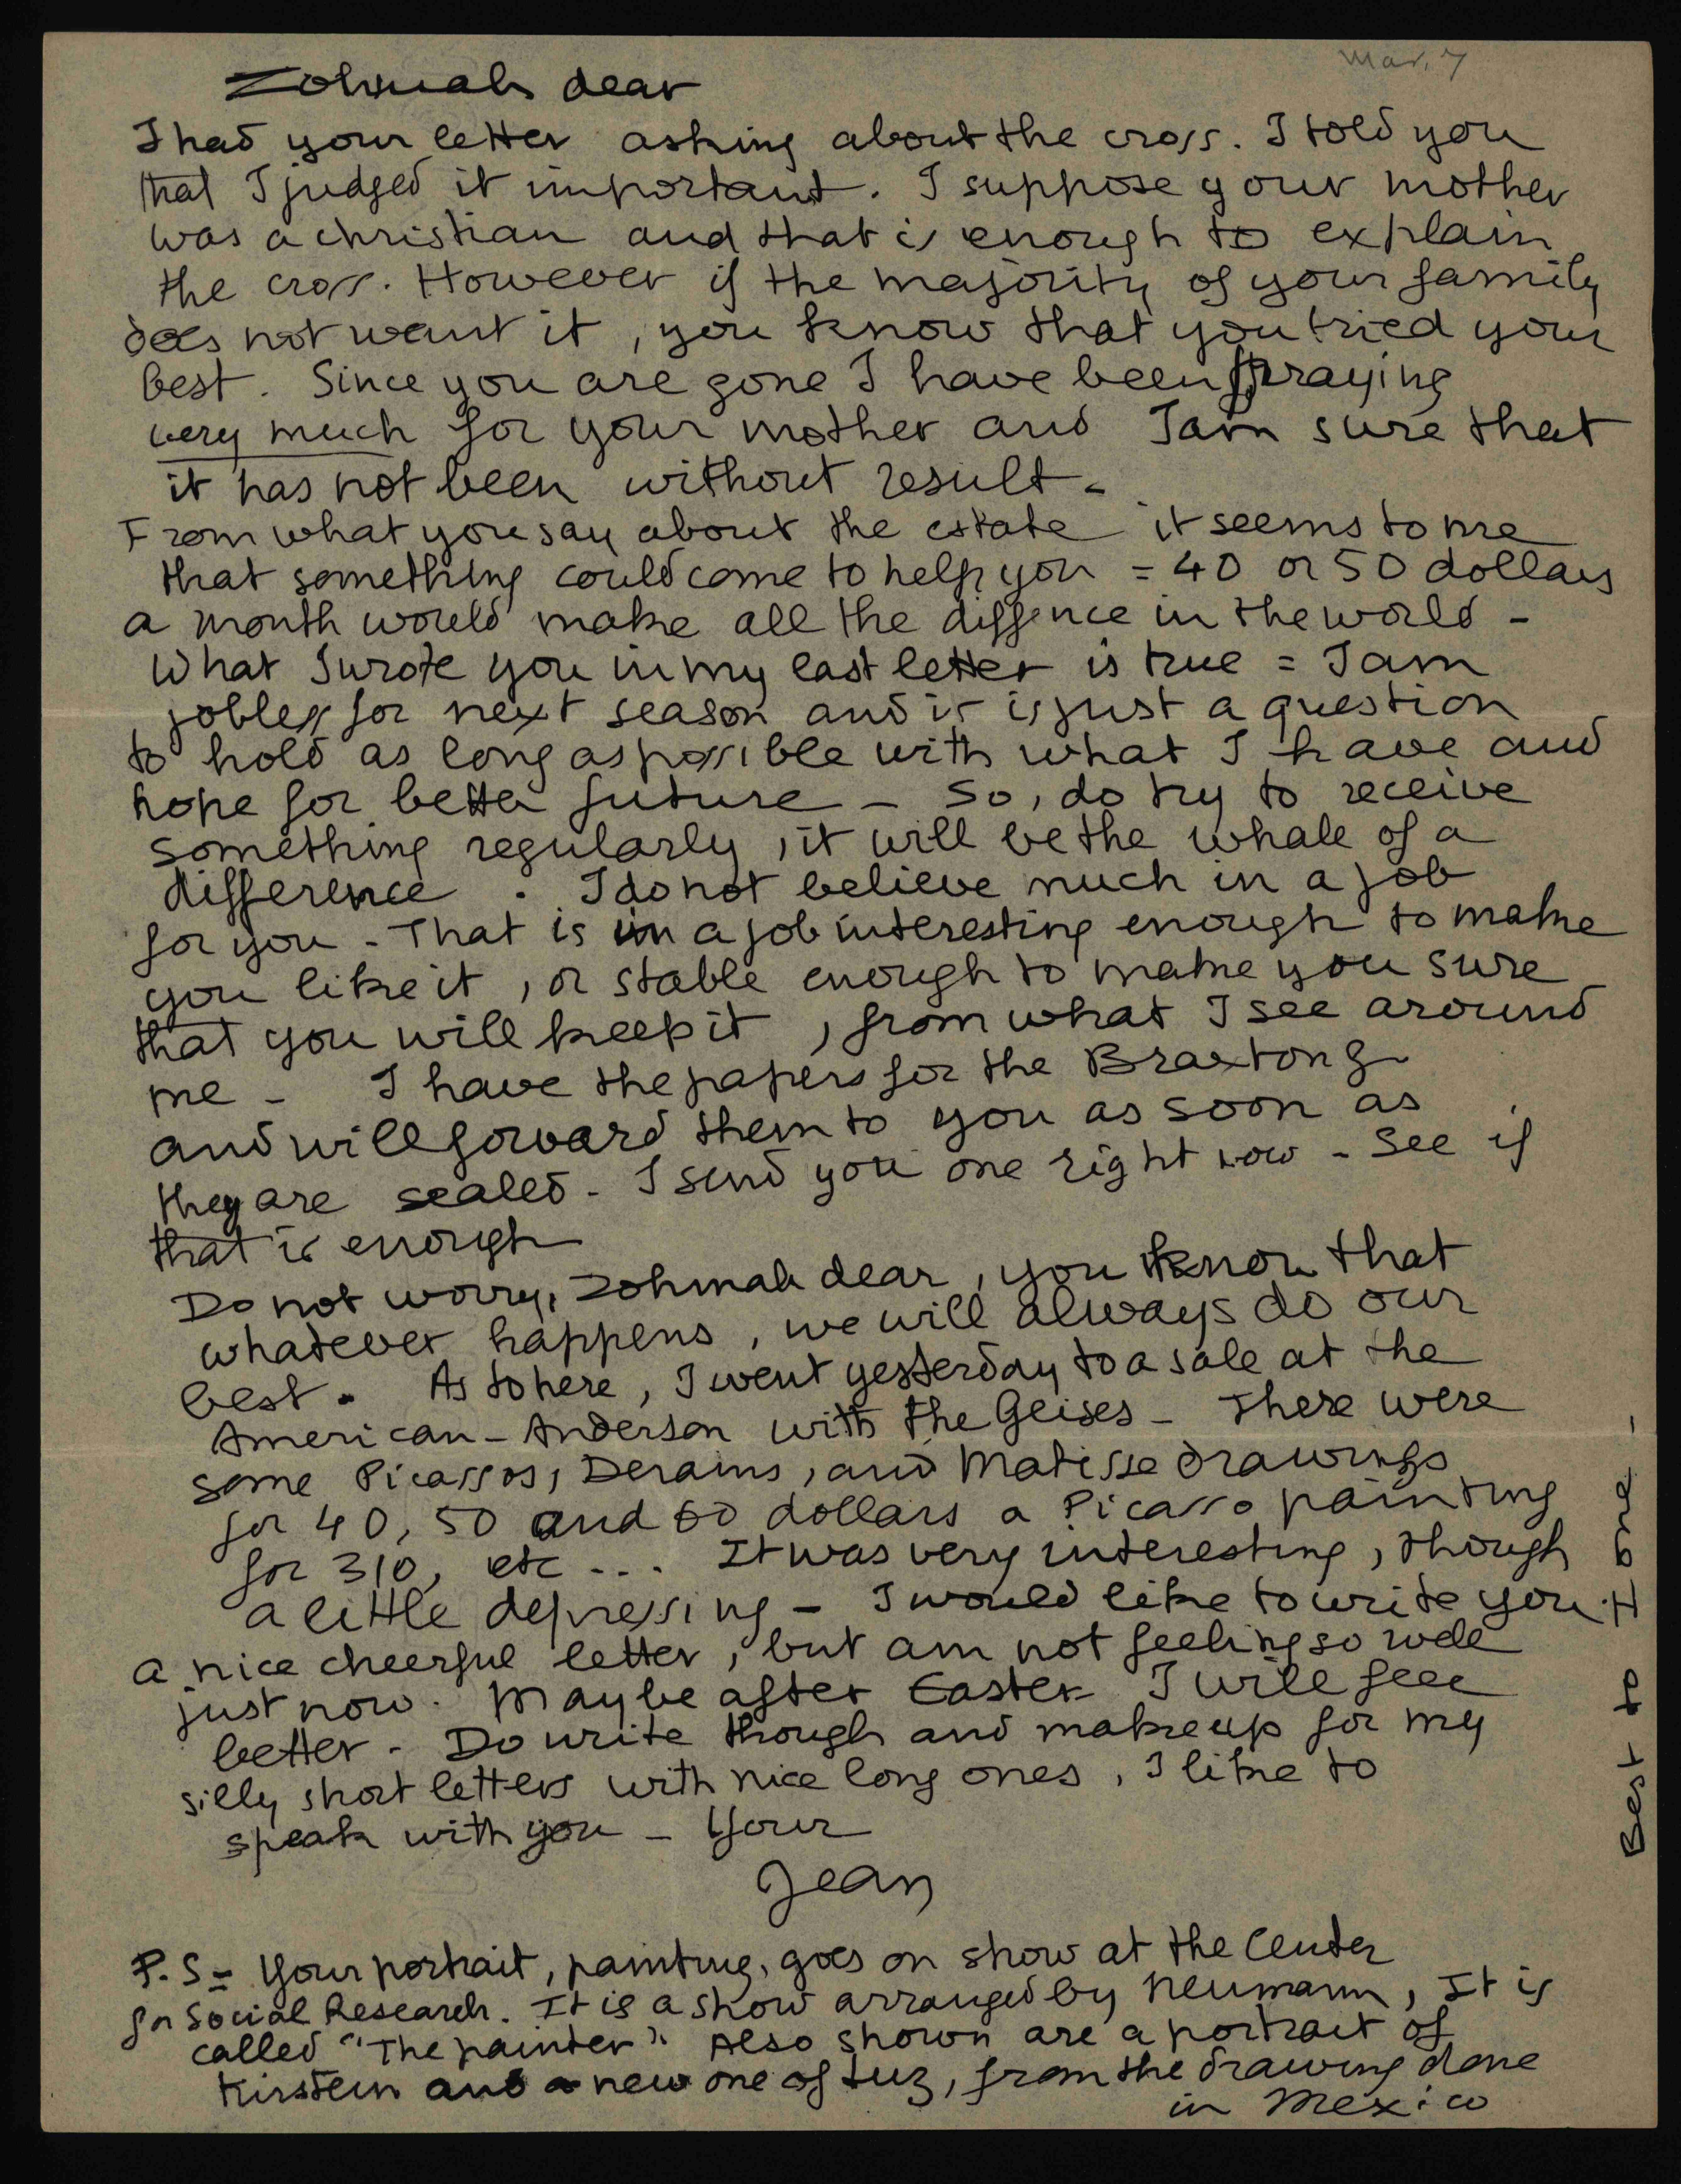 Mar. 7
Zohmah dear
I had your letter asking about the cross. I told you
that I judged it important. I suppose your mother
was a christian and that is enough to explain
the cross. However if the majority of your family
does not want it, you know that you tried your
best. Since you are gone I have been praying
very much for your mother and I am sure that
it has not been without result -
From what you say about the estate it seems to me
that something could come to help you = 40 or 50 dollars
a month would make all the diffence in the world -
What I wrote you in my last letter is true = I am
jobless for next season and it is just a question
to hold as long as possible with what I have and
hope for better future - So, do try to receive
something regularly, it will be the whale of a
difference. I do not believe much in a job
for you - That is in a job interesting enough to make
you like it, or stable enough to make you sure
that you will keep it, from what I see around
me - I have the papers for the Braxtong
and will forward them to you as soon as
they are sealed - I send you one right now - See if
that is enough
Do not worry, Zohmah dear, you know that
whatever happens, we will always do our
best. As to here, I went yesterday to a sale at the
American-Anderson with the Geises - There were
some Picassos, Derains, and Matisse drawings
for 40, 50 and 60 dollars a Picasso painting
for 310, etc ... It was very interesting, though
a little depressing - I would like to write you
a nice cheerful letter, but am not feeling so well
just now. Maybe after Easter I will feel
better - Do write though and make up for my
silly short letters with nice long ones, I like to
speak with you - Your
Jean
P.S - Your portrait, painting, goes on show at the Center
for Social Research. It is a show arranged by Neumann, It is
called "The painter". Also shown are a portrait of
Kirstein and a new one of Luz, from the drawing done
in Mexico
Best to Hone -